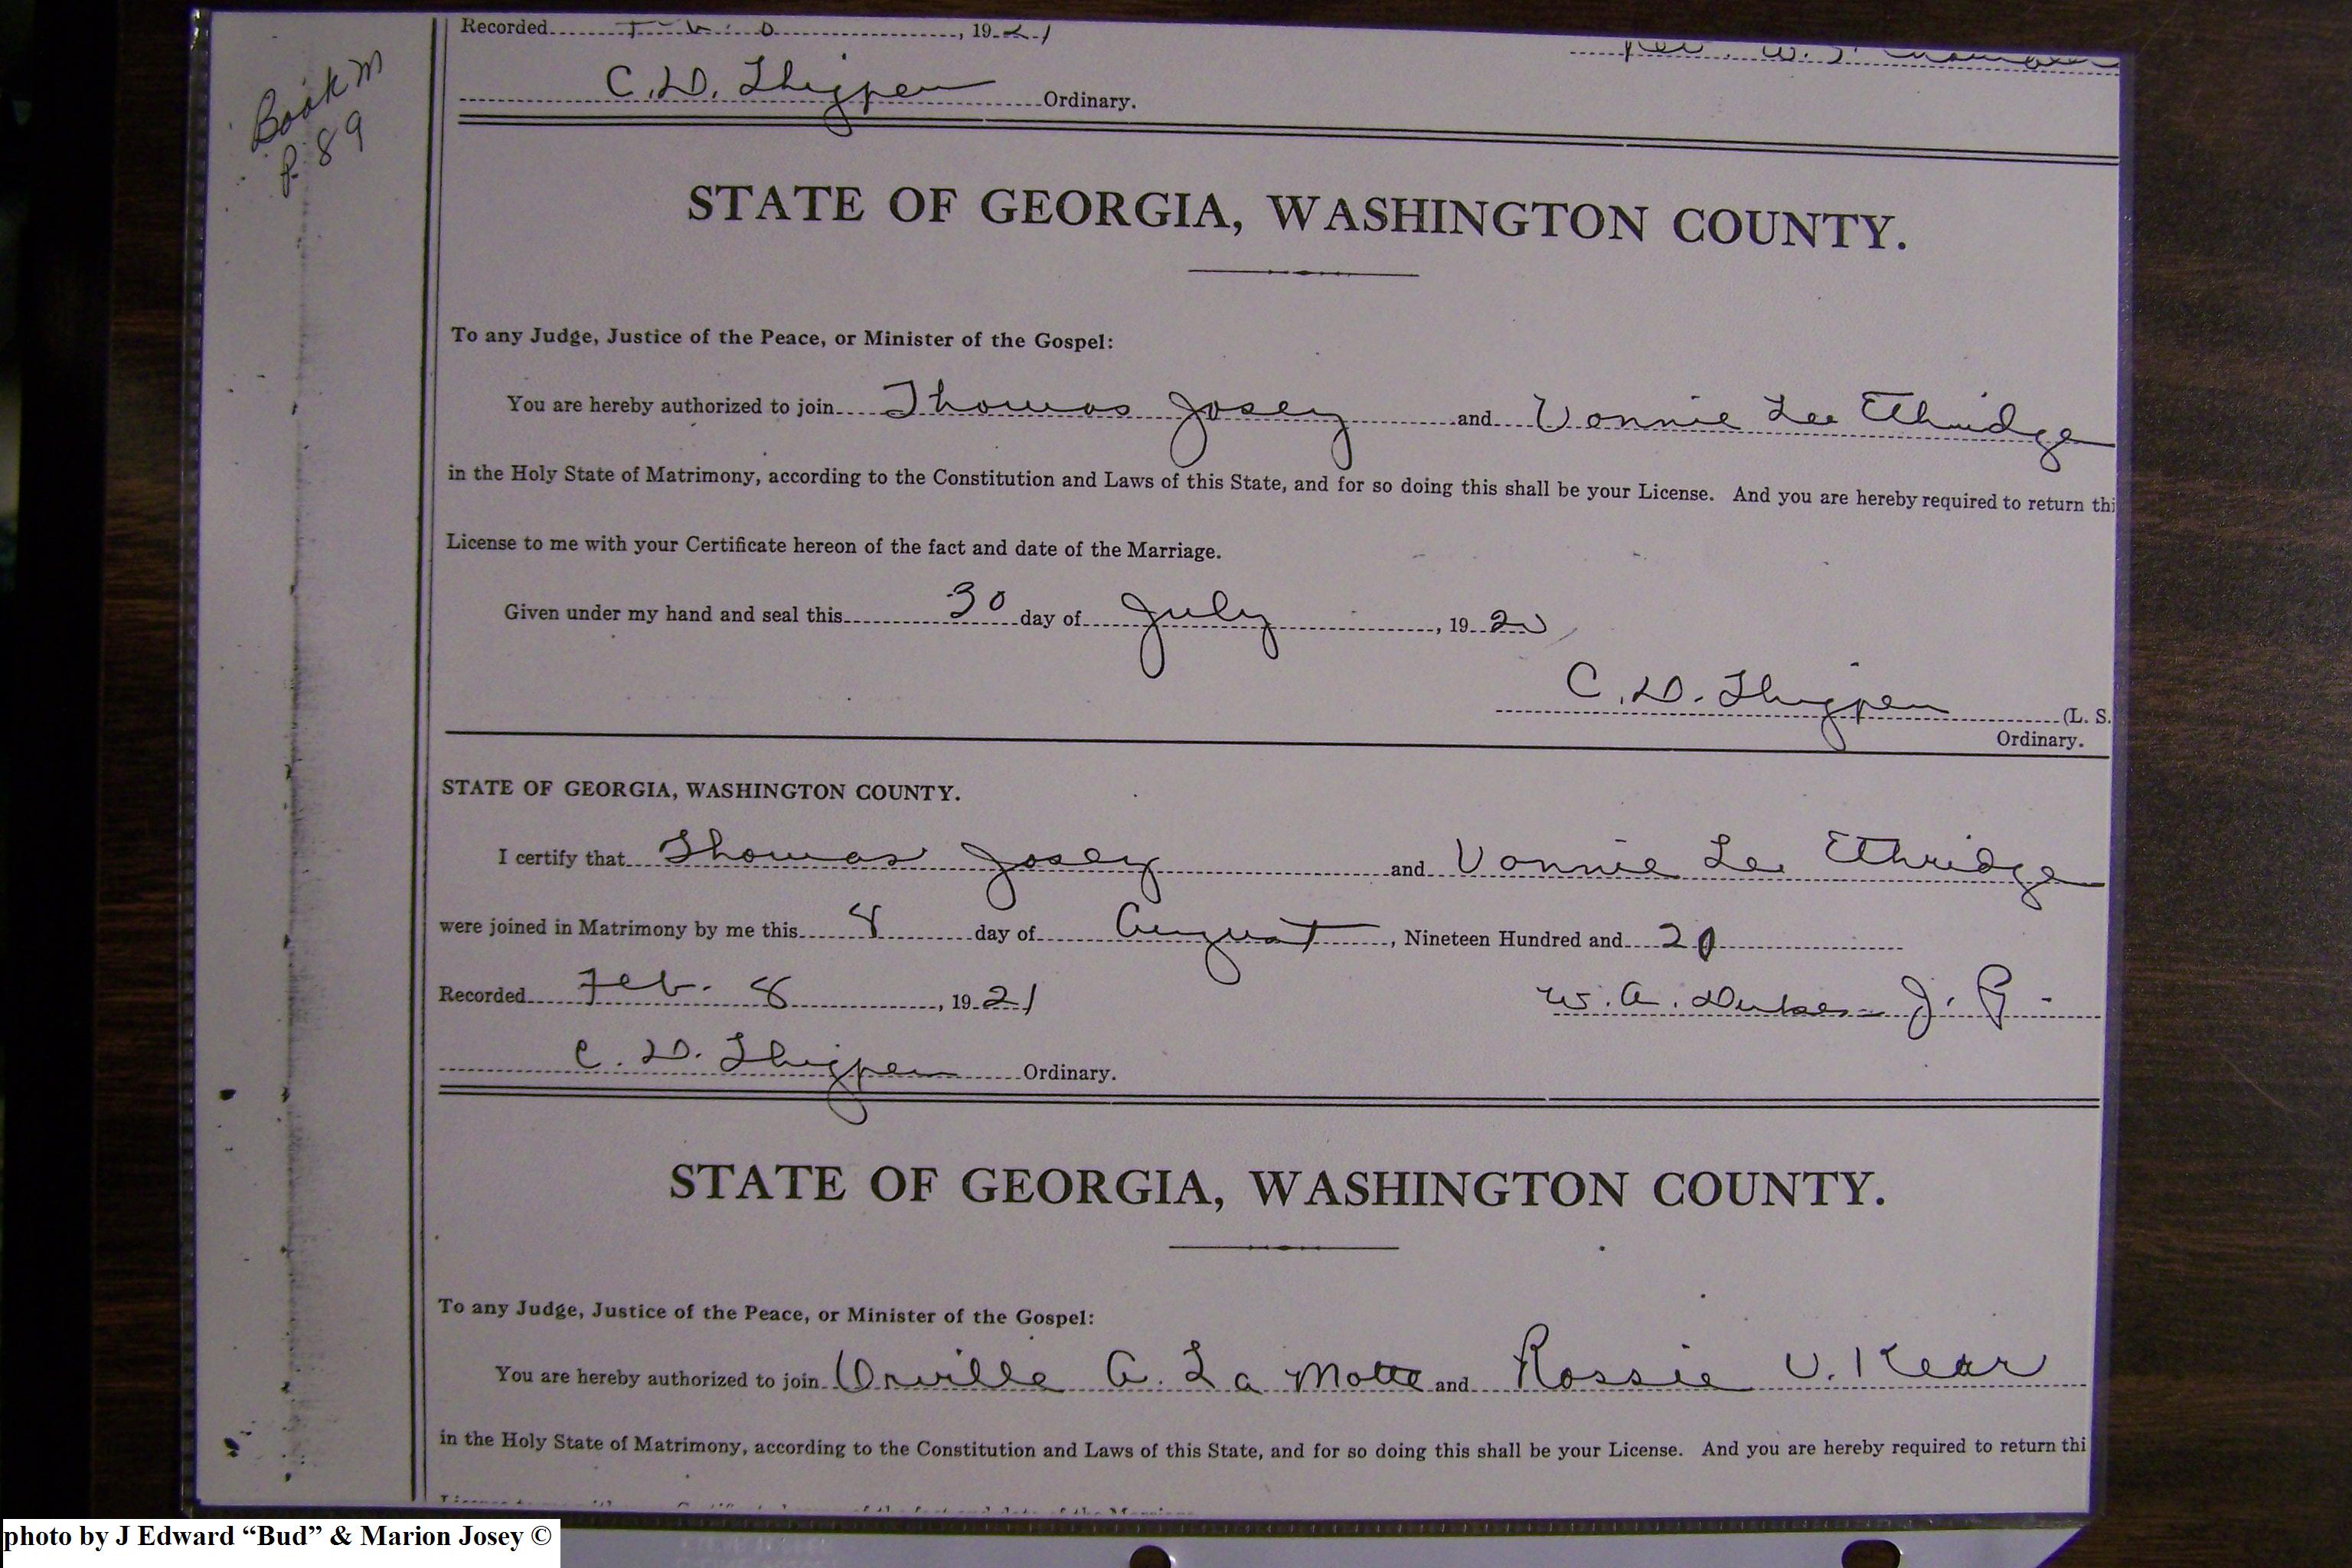 Book M
P. 89
Recorded, 1921
Rev. W.
C. D. Thigpen Ordinary.
STATE OF GEORGIA, WASHINGTON COUNTY.
To any Judge, Justice of the Peace, or Minister of the Gospel:
You are hereby authorized to join Thomas Josey and Vonnie Lee Ethridge
in the Holy State of Matrimony, according to the Constitution and Laws of this State, and for so doing this shall be your License. And you are hereby required to return thi
License to me with your Certificate hereon of the fact and date of the Marriage.
Given under my hand and seal this 30 day of July, 1920
C. D. Thigpen (L. S.
Ordinary.
STATE OF GEORGIA, WASHINGTON COUNTY.
I certify that Thomas Josey and Vonnie Lee Ethridge
were joined in Matrimony by me this 8 day of August, Nineteen Hundred and 20
Recorded Feb. 8, 1921 W. A. Dukes J. P.
C. D. Thigpen Ordinary.
STATE OF GEORGIA, WASHINGTON COUNTY.
To any Judge, Justice of the Peace, or Minister of the Gospel:
You are hereby authorized to join Orville A. La Motte and Rossie V. Kear
in the Holy State of Matrimony, according to the Constitution and Laws of this State, and for so doing this shall be your License. And you are hereby required to return thi
photo by J Edward “Bud” & Marion Josey ©